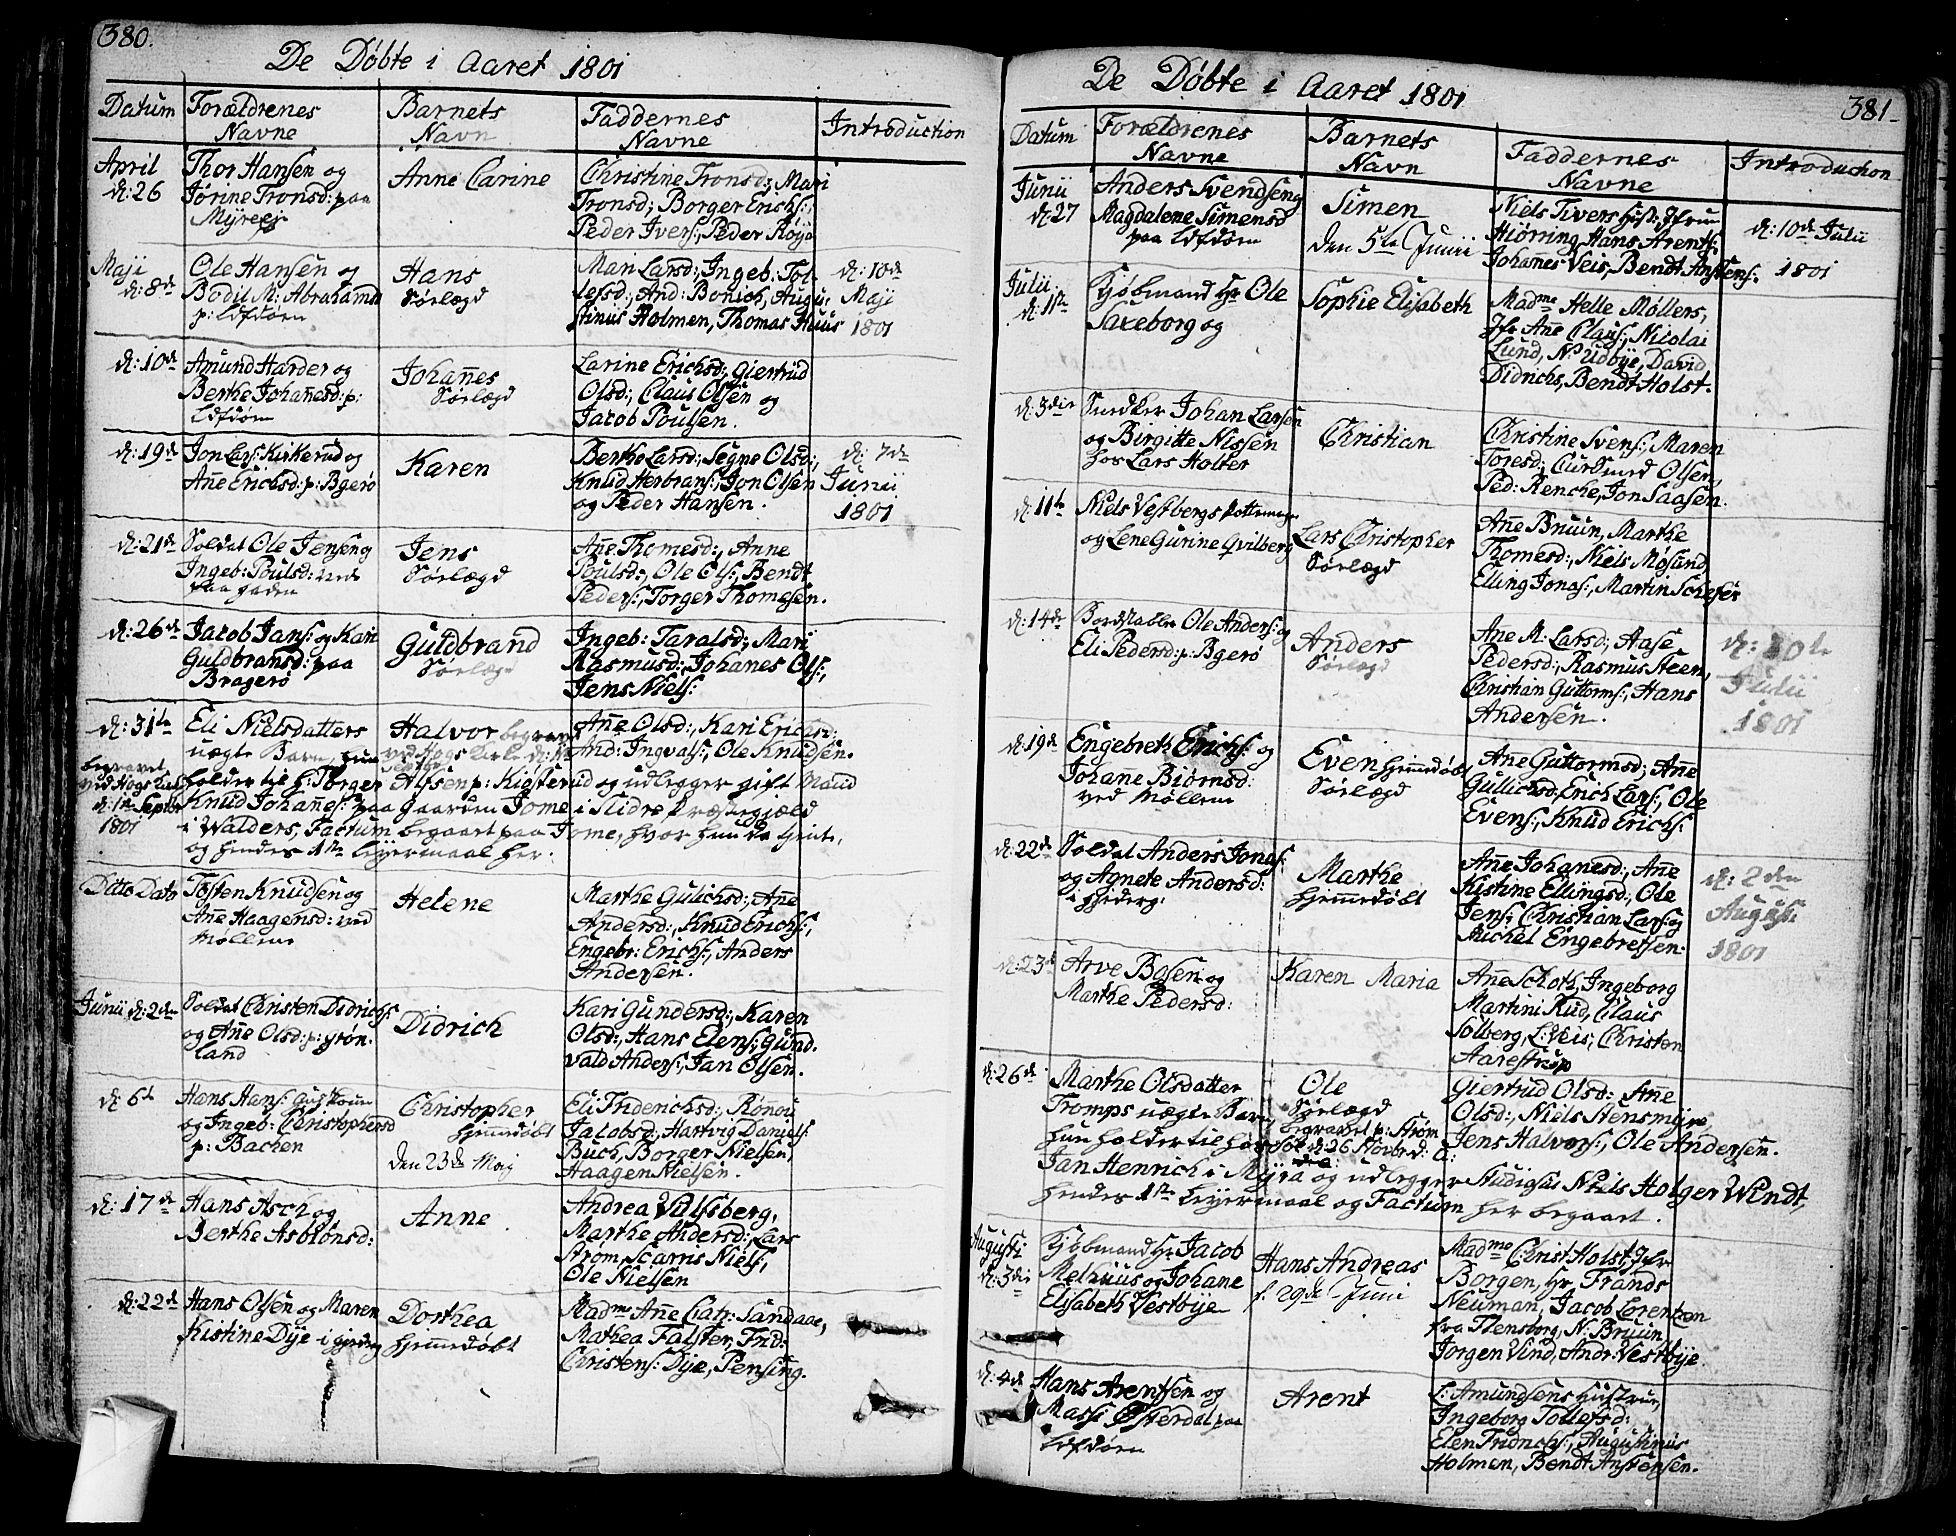 380.
De Døbte i Aaret 1801
Datum Forældrenes Navne Barnets Navn Faddernes Navne Introduction
April d: 26
Thor Hansen og
Jørine Tronsd: paa
Myreej
Anne Carine
Christine Tronsd:, Mari
Tronsd:, Borger Erichs:,
Peder Ivers:, Peder Roijo
Maji d: 8de
Ole Hansen og
Bodil M: Abrahamsd
p: Ldfdøen
Hans
Sørlægd
Mari Larsd:, Ingeb: Tol-
lefsd:, And: Bonich, Augu-
stinus Holmen, Thomas Huus
d: 10de
Maji
1801
d: 10de
Amund Harder og
Berthe Johannesd: p:
Ldfdøen
Johannes
Sørlægd
Larine Erichsd:, Giertrud
Olsd:, Claus Olsen og
Jacob Poulsen.
d: 19de
Jon Lars: Kirkerud og
Anne Erichsd: p: Bgerø
Karen
Berthe Larsd:, Segne Olsd:,
Knud Herbrans:, Jon Olsen
og Peder Hansen.
d: 7de
Junii
1801
d: 21de
Soldat Ole Jensen og
Ingeb: Poulsd: ved
paa
Jens
Sørlægd
Anne Thomesd:, Anne
Poulsd:, Ole Ols:, Bendt
Peders:, Torger Thomesen.
d: 26de
Jacob Jans: og Kari
Guldbransd: paa
Bragerø
Guldbrand
Sørlægd
Ingeb: Taralsd:, Mari
Rasmusd:, Johanes Ols:,
Jens Niels:
d: 31te
Eli Nielsdatters
uægte Barn, hun
holder til h: Torger Alfsen p: Kigsterud og udlegger gift Mand
Knud Johannes: paa Gaarden Jome i Slidre Præstegjæld
i Walders, Factum begaaet paa Jome, hvor hun da tjente,
og hendes 1ste Leyermaal her.
begravet
ved Hogs Kirke
d: 1te Septbr
1801
Halvor
Anne Olsd:, Kari Erichsd:
And: Ingvals:, Ole Knudsen.
Ditto Dato
Tosten Knudsen og
Anne Haagensd: ved
Møllene
Helene
Marthe Gulichsd:, Anne
Andersd:, Knud Erichs:,
Engebr: Erichs:, Anders
Andersen.
Junii d: 2den
Soldat Christen Didrichs:
og Anne Olsd: p: Grøn-
land
Didrich
Kari Gundersd:, Karen
Olsd:, Hans Elens:, Gund-
vald Anders:, Jan Olsen.
d: 6te
Hans Hans:
og Ingeb: Christophersd
p: Bachen
Christopher
Hjemmedøbt
den 23de Maij
Eli Friderichsd:, Rønnou
Jacobsd:, Hartvig Daniels:
Buch, Borger Nielsen,
Haagen Nielsen.
d: 17de
Hans Asch og
Berthe Asbiønsd:
Anne.
Andrea Vulfsberg,
Marthe Andersd:, Lars
Strøm, Scarris Niels:,
Ole Nielsen
d: 22de
Hans Olsen og Maren
Kistine Dye
Dorthea
Hjemmedøbt
Madme Ane Catr: Sandaae,
Mathea Falster, Frid:
Christens: Dye, Pensing.
381.
De Døbte i Aaret 1801
Datum Forældrenes Navne Barnets Navn Faddernes Navne Introduction
Junii d: 27
Anders Svendsen og
Magdalene Simensd
paa Ldfdøen
Simen
den 5te Junii
Niels Tivers Hust: Jfrue
Hiørring, Hans Arents:
Johanes Veis, Bendt Anstens:
d: 10de Julii
1801
Julii d: 1ste
Kjøbmand Hr Ole
Saxeborg og
Sophie Elisabeth
Madme Helle Møllers,
Jfr Ane Claus:, Nicolai
Lund, Ns Udbye, David
Didrichs, Bendt Holst.
d: 3die
Snedker Johan Larsen
og Birgitte Nissen
hos Lars Holter
Christian
Christine Svens:, Maren
Toresd:, Gulsmed Olsen,
Ped: Renche, Jon Saasen.
d: 11te
Niels Vestbergs
og Lene Gurine Qvilberg
Lars Christopher
Sørlægd
Anne Bruun, Marthe
Thomesd:, Niels Møsand,
Elling Jonas:, Martin Schefer
d: 14de
Bordstabler Ole Anders: og
Eli Pedersd: p: Bgerø
Anders
Sørlægd
Ane M: Larsd:, Aase
Pedersd:, Rasmus Steen,
Christian Guttorms:, Hans
Andersen.
Julii
1801
d: 19de
Engebreth Erichs: og
Johanne Biørnsd:
ved Møllene
Even Hjemmedøbt
Sørlægd
Anne Guttormsd:, Anne
Gulichsd:, Erich Lars:, Ole
Evens:, Knud Erichs:
d: 22de
Soldat Anders Jonas:
og Agnete Andersd:
Marthe
Hjemmedøbt
Anne Johanesd:, Anne
Kistine Ellingsd:, Ole
Jens:, Christian Lars: og
Michel Engebretsen.
d: 2den
August:
1801
d: 23de
Arve Bosen og
Marthe Pedersd:
Karen Maria
Ane Schoth, Ingeborg
Martini Rud, Claus
Solberg, L: Veis, Christen
Aarestrup
d: 26de
Marthe Olsdatter
Tromps uægte Barn,
hun holder til hos
Jan Henrich i Myra og udlegger Studiosus Niels Holger Windt,
hendes 1ste Leyermaal og Factum her begaaet.
Ole
Sørlægd
begravet p: Strøm-
søe d: 26 Novbr:
Giertrud Olsd:, Anne
Olsd:, Niels Stensmyre,
Jens Halvors:, Ole Andersen.
Augusti
d: 3die
Kjøbmand Hr Jacob
Melhuus og Johane
Elisabeth Vestbye
Hans Andreas
f. 29de Juni
Madme Christ: Holst, Jfr
Borgen, Hr Frands
Neuman, Jacob Lorentzen
fra Flensborg, N: Bruun
Jorgen Vind, Andr: Vestbye
d: 4de
Hans Arentsen og
Massi Østerdal paa
Ldfdøen
Arent
L: Amundsens Hustrue,
Ingeborg Tollefsd:
Elen Fridrichs:, Augustinus
Holmen, Bendt Anstensen.